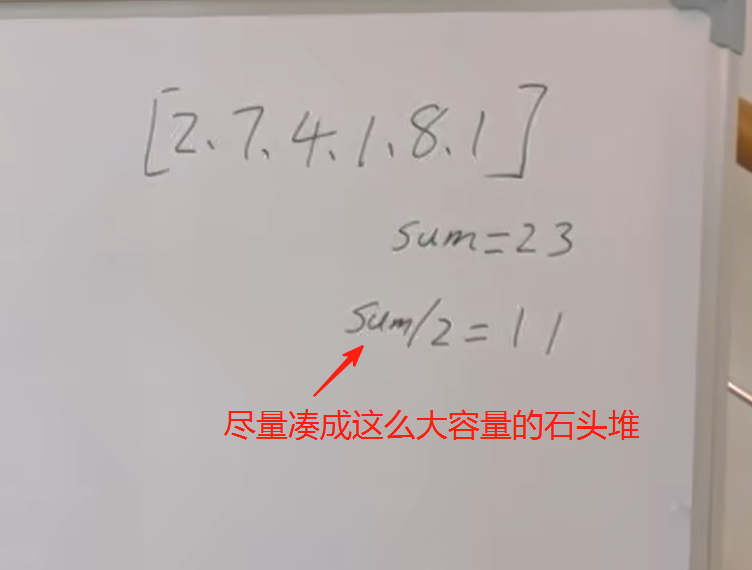 [2、7、4、1、8、1]
sum=23
sum/2=11
尽量凑成这么大容量的石头堆